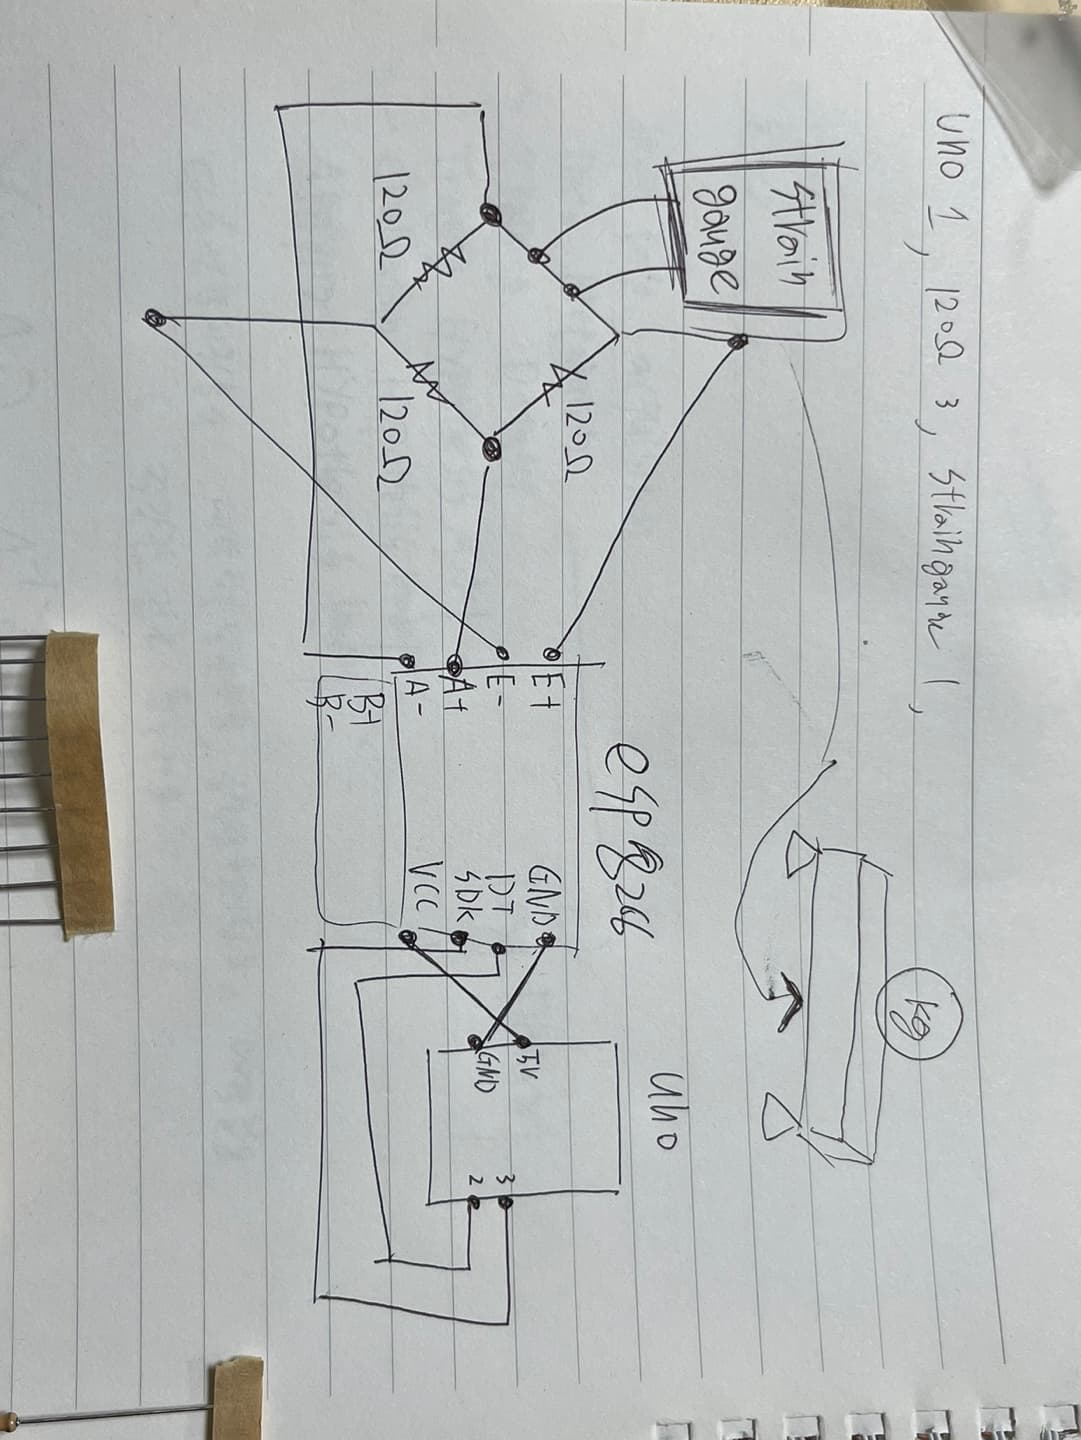 Uno 1, 120Ω 3, Straingauge 1,
Strain
gauge
120Ω
120Ω
120Ω
kg
esp8266
uno
E+
E-
A+
A-
B+
B-
GND
DT
SDK
VCC
5V
GND
3
2